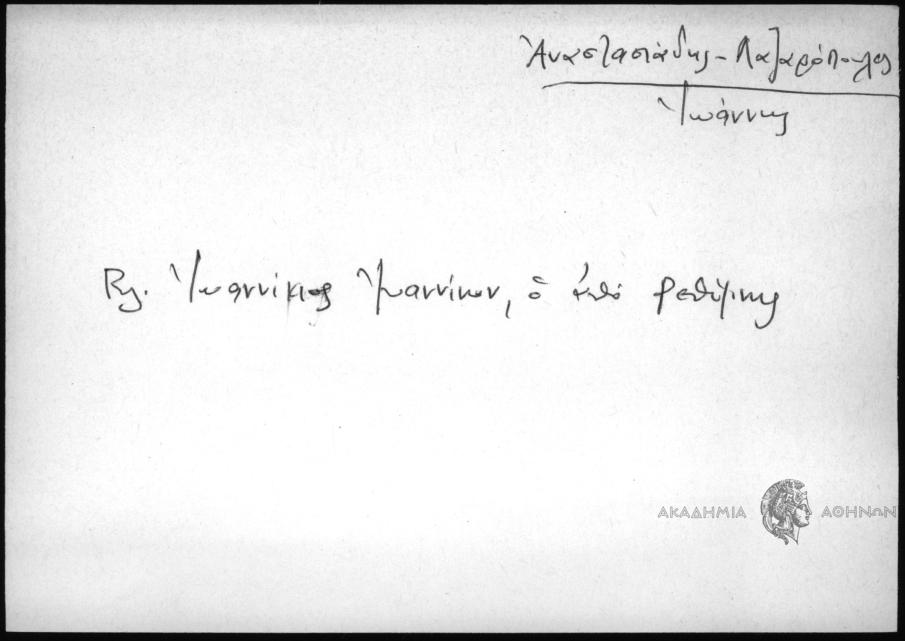 Ἀναστασιάδης - Λαζαρόπουλος
Ἰωάννης
Βλ. Ἰωαννίκιος Ἰωαννίνων, ὁ ἀπό Ρεθύμνης
ΑΚΑΔΗΜΙΑ ΑΘΗΝΩΝ